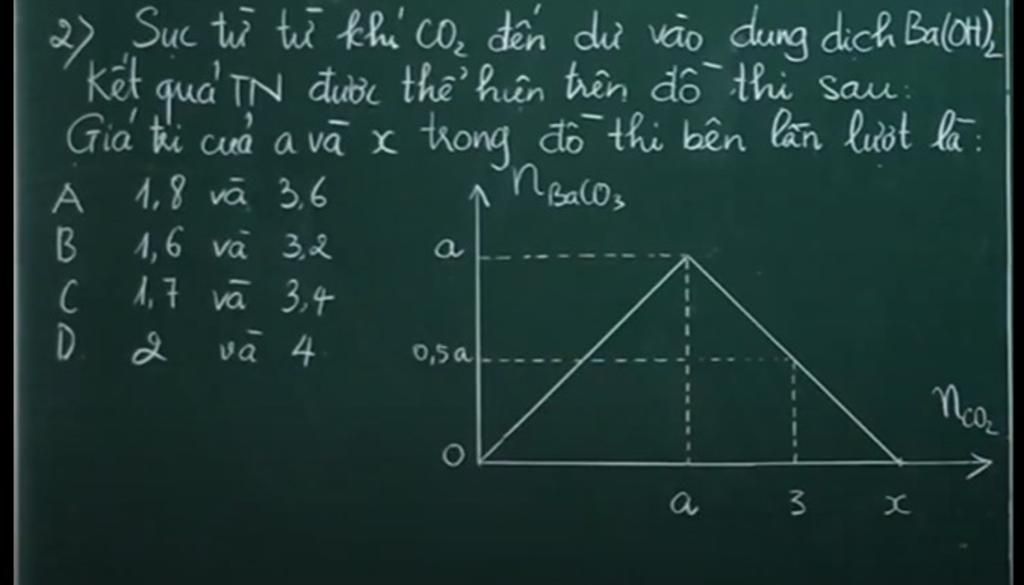 2) Sục từ từ khí CO₂ đến dư vào dung dịch Ba(OH)₂
Kết quả TN được thể hiện trên đồ thị sau:
Giá trị của a và x trong đồ thị bên lần lượt là:
A 1,8 và 3,6
B 1,6 và 3,2
C 1,7 và 3,4
D 2 và 4
n BaCO₃
a
0,5a
0
n CO₂
a 3 x